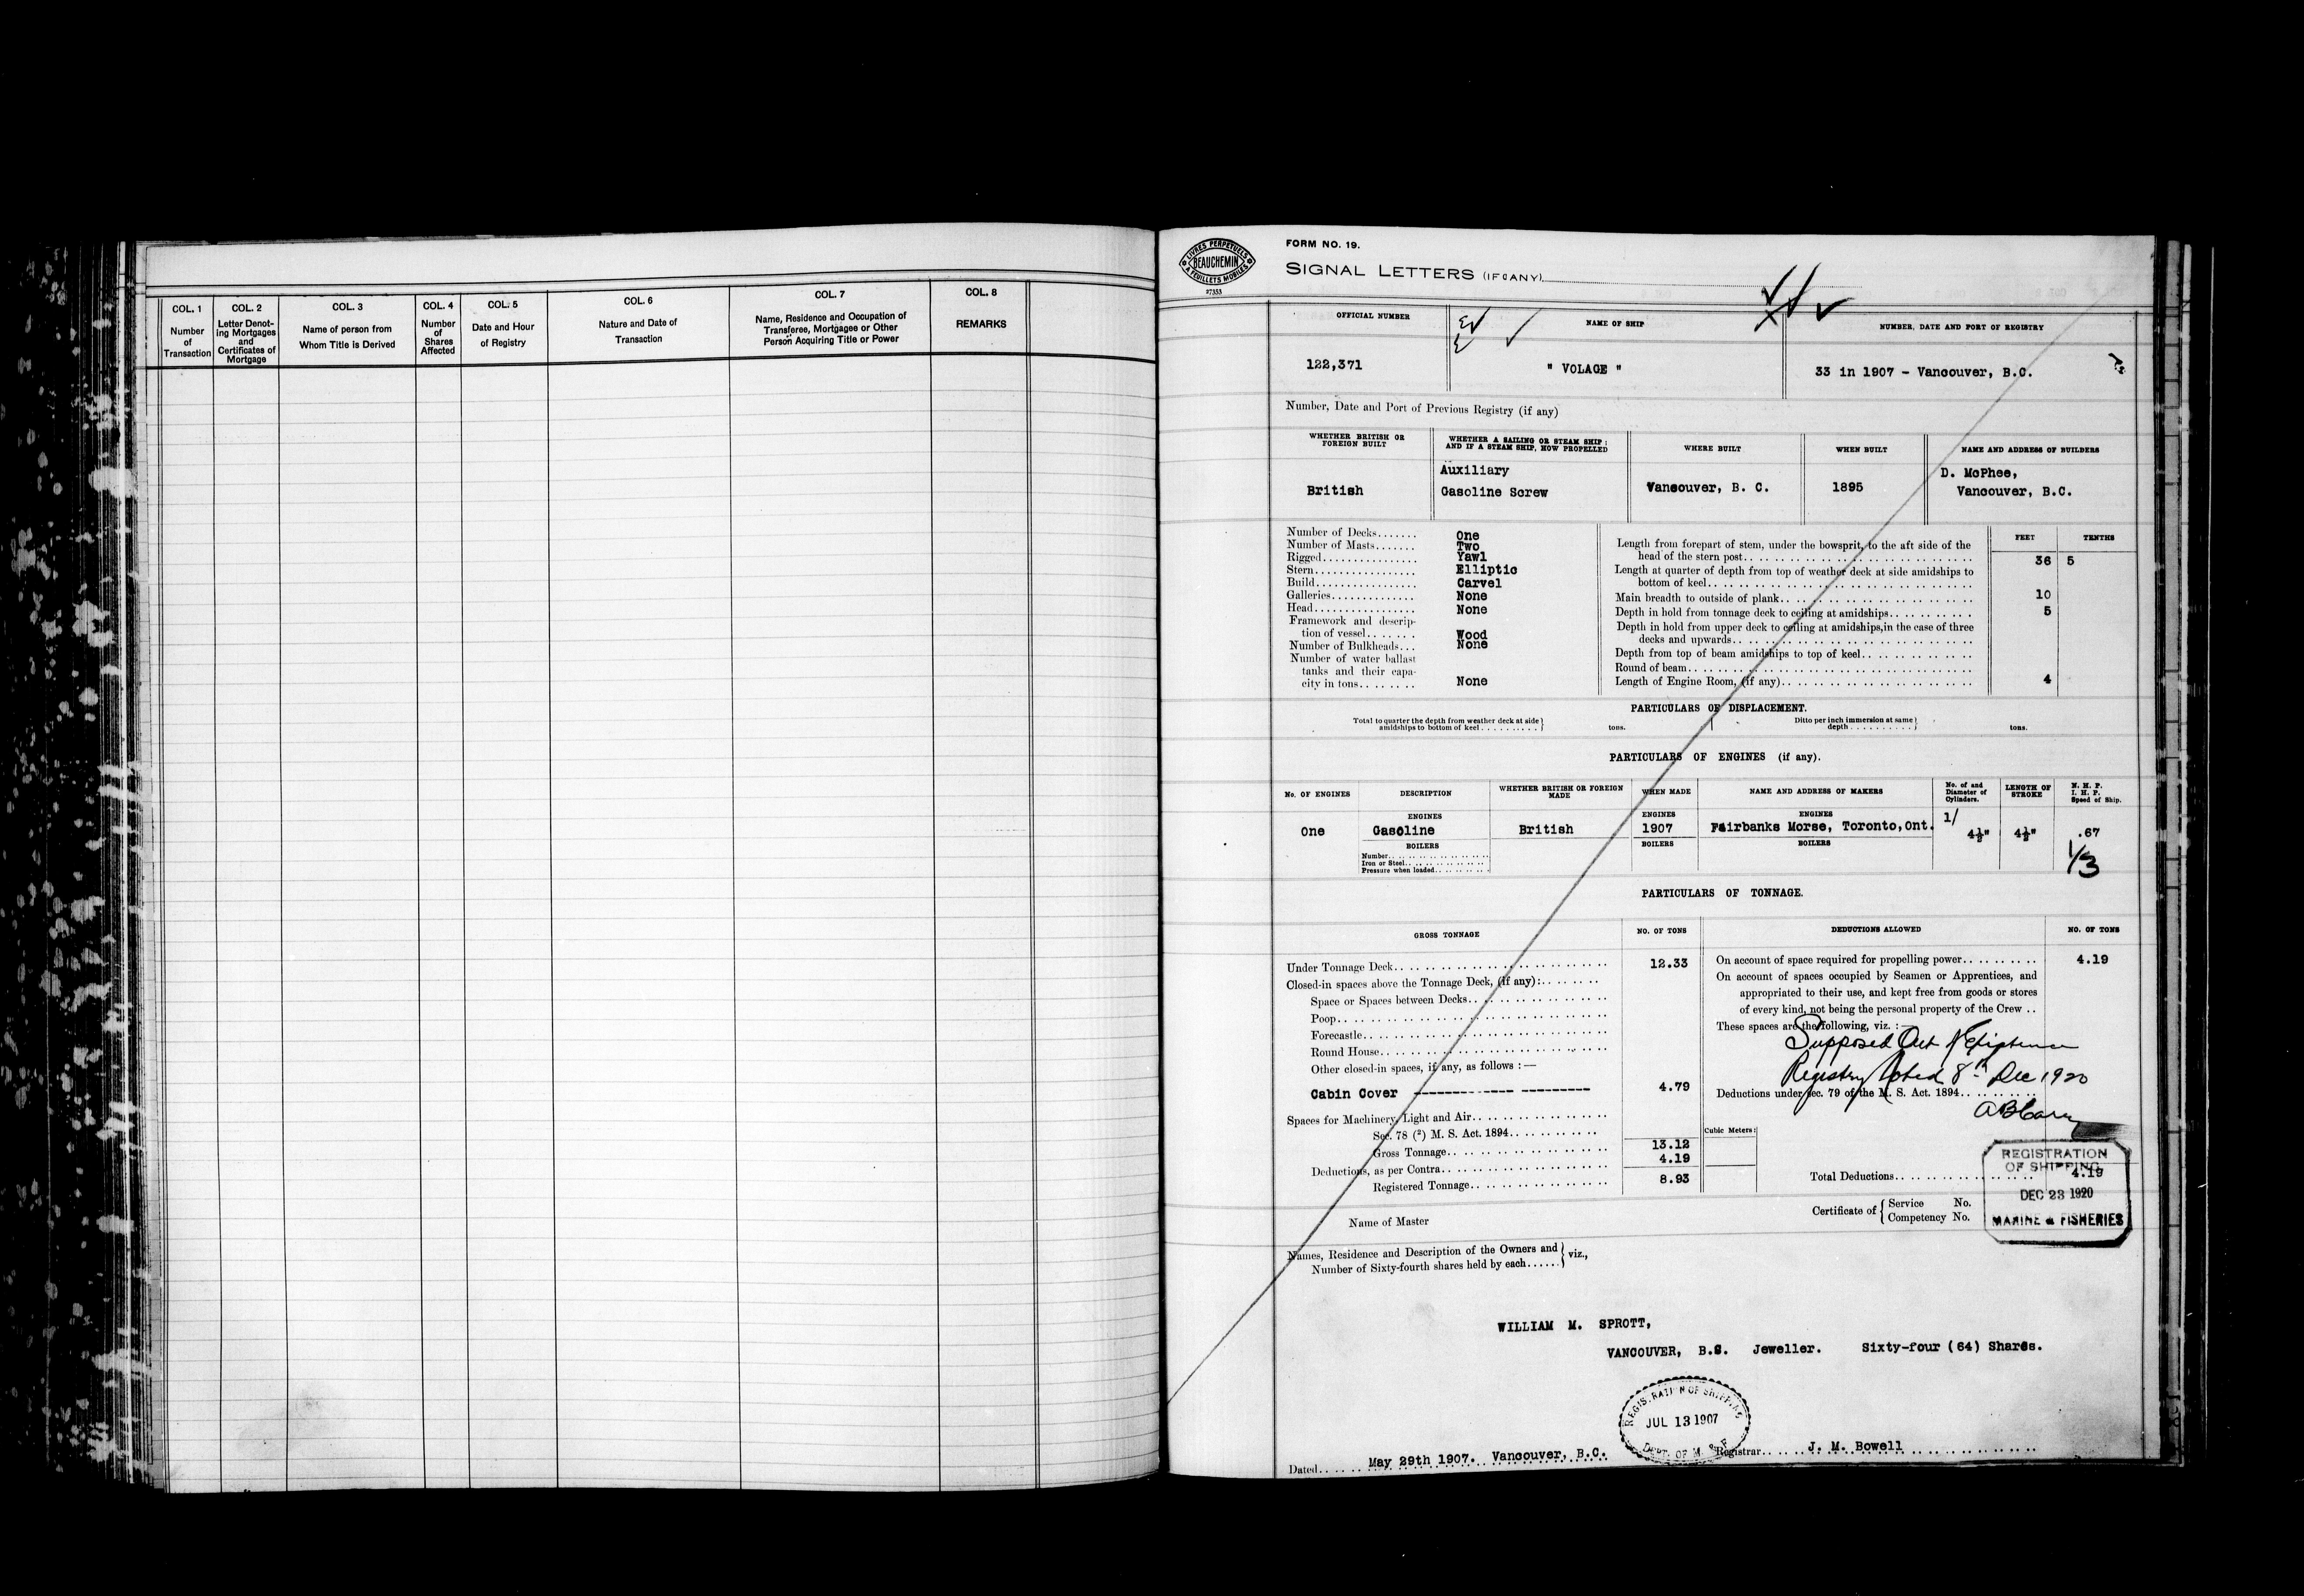 COL. 1
Number
of
Transaction
COL. 2
Letter Denot-
ing Mortgages
and
Certificates of
Mortgage
COL. 3
Name of person from
Whom Title is Derived
COL. 4
Number
of
Shares
Affected
COL. 5
Date and Hour
of Registry
COL. 6
Nature and Date of
Transaction
COL. 7
Name, Residence and Occupation of
Transferee, Mortgagee or Other
Person Acquiring Title or Power
COL. 8
REMARKS
LIVRES PERPETUELS
BEAUCHEMIN
A FEUILLETS MOBILES
27353
FORM NO. 19.
SIGNAL LETTERS (IF ANY)
OFFICIAL NUMBER
122,371
NAME OF SHIP
" VOLAGE "
NUMBER, DATE AND PORT OF REGISTRY
33 in 1907 - Vancouver, B.C.
Number, Date and Port of Previous Registry (if any)
WHETHER BRITISH OR
FOREIGN BUILT
British
WHETHER A SAILING OR STEAM SHIP;
AND IF A STEAM SHIP, HOW PROPELLED
Auxiliary
Gasoline Screw
WHERE BUILT
Vancouver, B. C.
WHEN BUILT
1895
NAME AND ADDRESS OF BUILDERS
D. McPhee,
Vancouver, B.C.
Number of Decks....... One
Number of Masts....... Two
Rigged................ Yawl
Stern................. Elliptic
Build................. Carvel
Galleries.............. None
Head................. None
Framework and descrip-
tion of vessel....... Wood
Number of Bulkheads... None
Number of water ballast
tanks and their capa-
city in tons........ None
FEET TENTHS
Length from forepart of stem, under the bowsprit, to the aft side of the
head of the stern post.......... 36 5
Length at quarter of depth from top of weather deck at side amidships to
bottom of keel..........
Main breadth to outside of plank.......... 10
Depth in hold from tonnage deck to ceiling at amidships.......... 5
Depth in hold from upper deck to ceiling at amidships, in the case of three
decks and upwards..........
Depth from top of beam amidships to top of keel..........
Round of beam..........
Length of Engine Room, (if any).......... 4
PARTICULARS OF DISPLACEMENT.
Total to quarter the depth from weather deck at side
amidships to bottom of keel.......... tons.
Ditto per inch immersion at same
depth.......... tons.
PARTICULARS OF ENGINES (if any).
No. OF ENGINES
One
DESCRIPTION
ENGINES
Gasoline
BOILERS
Number..........
Iron or Steel..........
Pressure when loaded..........
WHETHER BRITISH OR FOREIGN
MADE
British
WHEN MADE
ENGINES
1907
BOILERS
NAME AND ADDRESS OF MAKERS
ENGINES
Fairbanks Morse, Toronto, Ont.
BOILERS
No. of and
Diameter of
Cylinders.
1/
4½"
LENGTH OF
STROKE
4½"
N. H. P.
I. H. P.
Speed of Ship.
.67
1/3
PARTICULARS OF TONNAGE.
GROSS TONNAGE
NO. OF TONS
Under Tonnage Deck.......... 12.33
Closed-in spaces above the Tonnage Deck, (if any):......
Space or Spaces between Decks..........
Poop..........
Forecastle..........
Round House..........
Other closed-in spaces, if any, as follows :—
Cabin Cover ---------- 4.79
Spaces for Machinery, Light and Air..........
Sec. 78 (²) M. S. Act. 1894..........
Gross Tonnage.......... 13.12
Deductions, as per Contra.......... 4.19
Registered Tonnage.......... 8.93
DEDUCTIONS ALLOWED
NO. OF TONS
On account of space required for propelling power.......... 4.19
On account of spaces occupied by Seamen or Apprentices, and
appropriated to their use, and kept free from goods or stores
of every kind, not being the personal property of the Crew ..
These spaces are the following, viz. :—
Supposed Out of Existence
Registry Closed 8th Dec 1920
Deductions under Sec. 79 of the M. S. Act. 1894..........
Cubic Meters:
Total Deductions.......... 4.19
REGISTRATION
OF SHIPPING
DEC 23 1920
MARINE & FISHERIES
Name of Master
Certificate of { Service No.
Competency No.
Names, Residence and Description of the Owners and
Number of Sixty-fourth shares held by each...... } viz.,
WILLIAM M. SPROTT,
VANCOUVER, B.C. Jeweller. Sixty-four (64) Shares.
REGISTRATION OF SHIPPING
JUL 13 1907
DEPT. OF M. & F.
Dated.... May 29th 1907. Vancouver, B.C.
Registrar.... J. M. Bowell